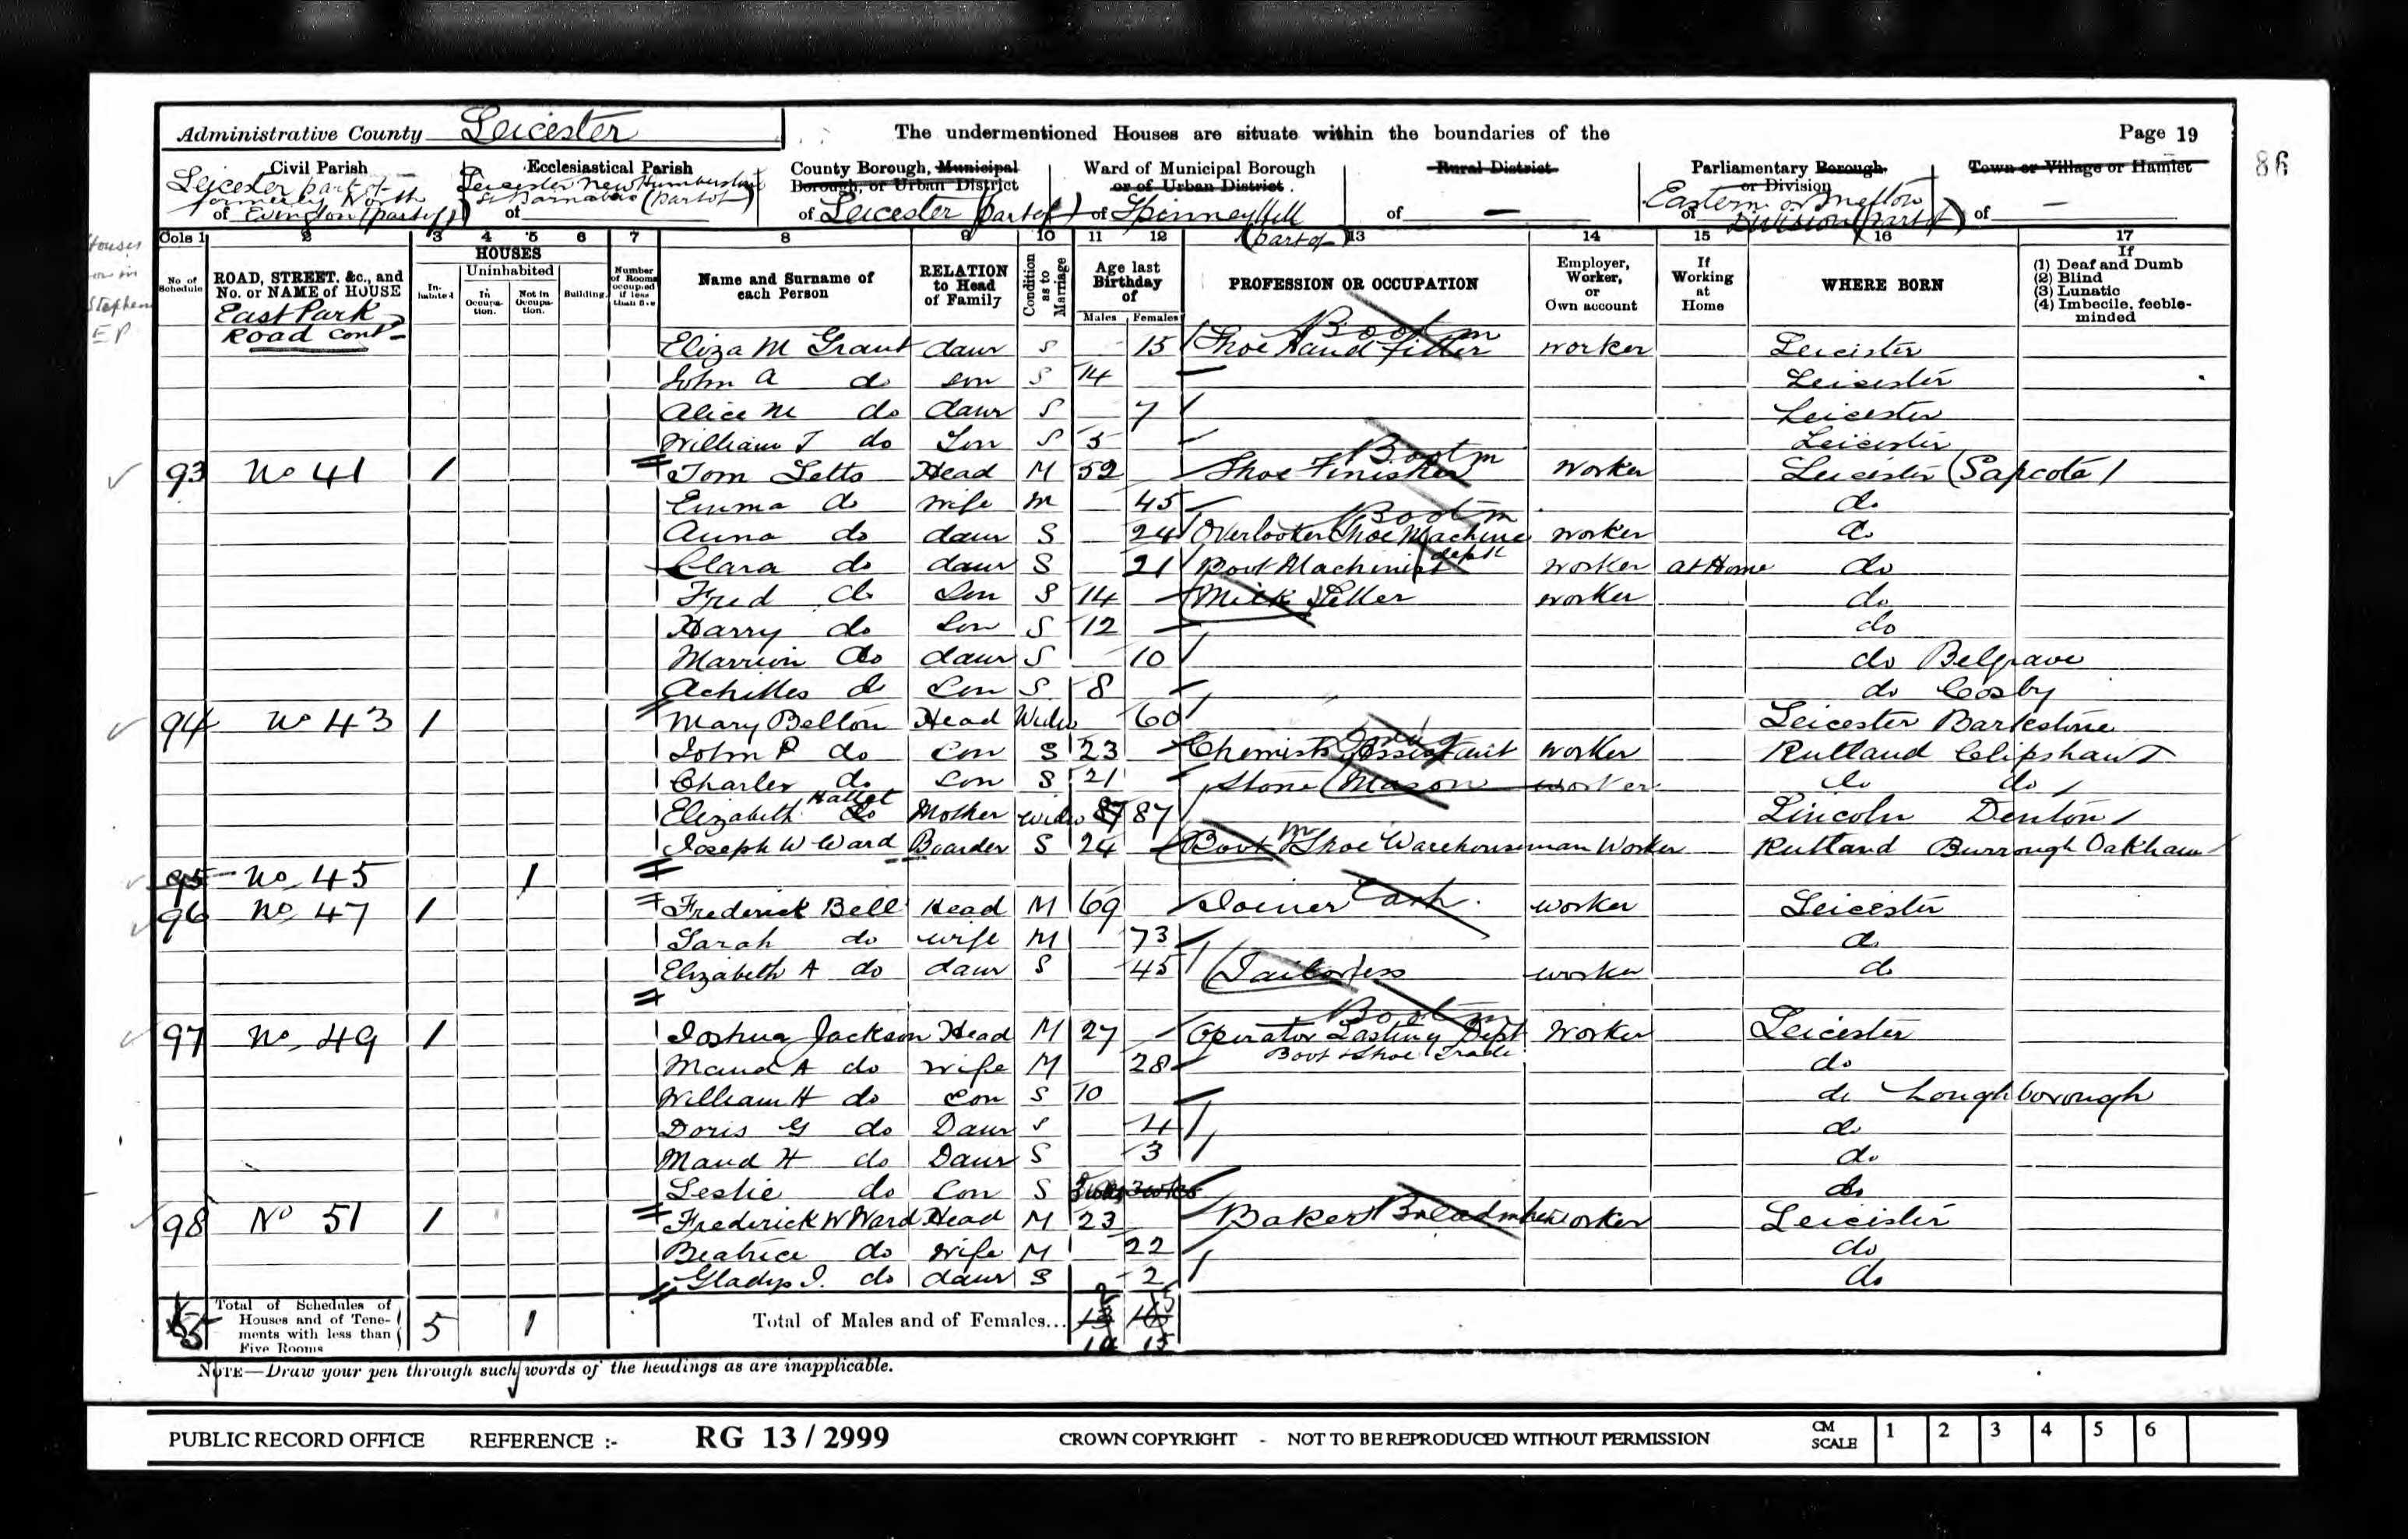 Administrative County Leicester
The undermentioned Houses are situate within the boundaries of the
Page 19
86
Civil Parish Ecclesiastical Parish County Borough, Municipal Borough, or Urban District Ward of Municipal Borough or of Urban District Rural District Parliamentary Borough or Division Town or Village or Hamlet
Leicester part of formerly North of Evington (part of)
Leicester New Humberstone St Barnabas (part of) of
of Leicester (part of)
of Spinney Hill (part of)
of —
Eastern or Melton of Division (part of)
of —
Houses
Stephen
E P
Cols 1 2 3 4 5 6 7 8 9 10 11 12 13 14 15 16 17
No of Schedule
ROAD, STREET, &c., and No. or NAME of HOUSE
HOUSES
Inhabited
Uninhabited
In Occupation.
Not in Occupation.
Building
Number of Rooms occupied if less than five
Name and Surname of each Person
RELATION to Head of Family
Condition as to Marriage
Age last Birthday of
Males Females
PROFESSION OR OCCUPATION
Employer, Worker, or Own account
If Working at Home
WHERE BORN
If (1) Deaf and Dumb (2) Blind (3) Lunatic (4) Imbecile, feeble-minded
East Park Road cont
Boot m
Eliza M Grant daur S 15 Shoe Hand Fitter worker Leicester
John A do son S 14 Leicester
Alice M do daur S 7 Leicester
William T do Son S 5 Leicester
Boot m
93 No 41 1 Tom Letts Head M 52 Shoe Finisher Worker Leicester (Sapcote)
Emma do wife M 45 do
Boot m
Anna do daur S 24 Overlooker Shoe Machine dept worker do
Clara do daur S 21 Boot Machinist worker at Home do
Fred do Son S 14 Milk Seller worker do
Harry do Son S 12 do
Marrion do daur S 10 do Belgrave
Achilles do Son S 8 do Cosby
94 No 43 1 Mary Belton Head Widw 60 Leicester Barkestone
John P do Son S 23 Chemists Assistant worker Rutland Clipsham
Charles do Son S 21 Stone Mason worker do do
Elizabeth Hallet do Mother widw 87 87 Lincoln Denton
Joseph W Ward Boarder S 24 Boot m Shoe Warehouseman Worker Rutland Burrough Oakham
95 No 45 1
96 No 47 1 Frederick Bell Head M 69 Joiner Carp. worker Leicester
Sarah do wife M 73 do
Elizabeth A do daur S 45 Tailoress worker do
Boot m
97 No 49 1 Joshua Jackson Head M 27 Operator Lasting Dept Worker Leicester
Boot & Shoe Trade
Maud A do wife M 28 do
William H do Son S 10 do Loughborough
Doris G do Daur S 4 do
Maud H do Daur S 3 do
Leslie do Son S 3 wks 3 wks do
98 No 51 1 Frederick W Ward Head M 23 Baker Breadmker worker Leicester
Beatrice do wife M 22 do
Gladys I. do daur S 2 do
Total of Schedules of Houses and of Tenements with less than Five Rooms
5 1
Total of Males and of Females...
15
NOTE—Draw your pen through such words of the headings as are inapplicable.
PUBLIC RECORD OFFICE REFERENCE :- RG 13 / 2999 CROWN COPYRIGHT - NOT TO BE REPRODUCED WITHOUT PERMISSION CM SCALE 1 2 3 4 5 6